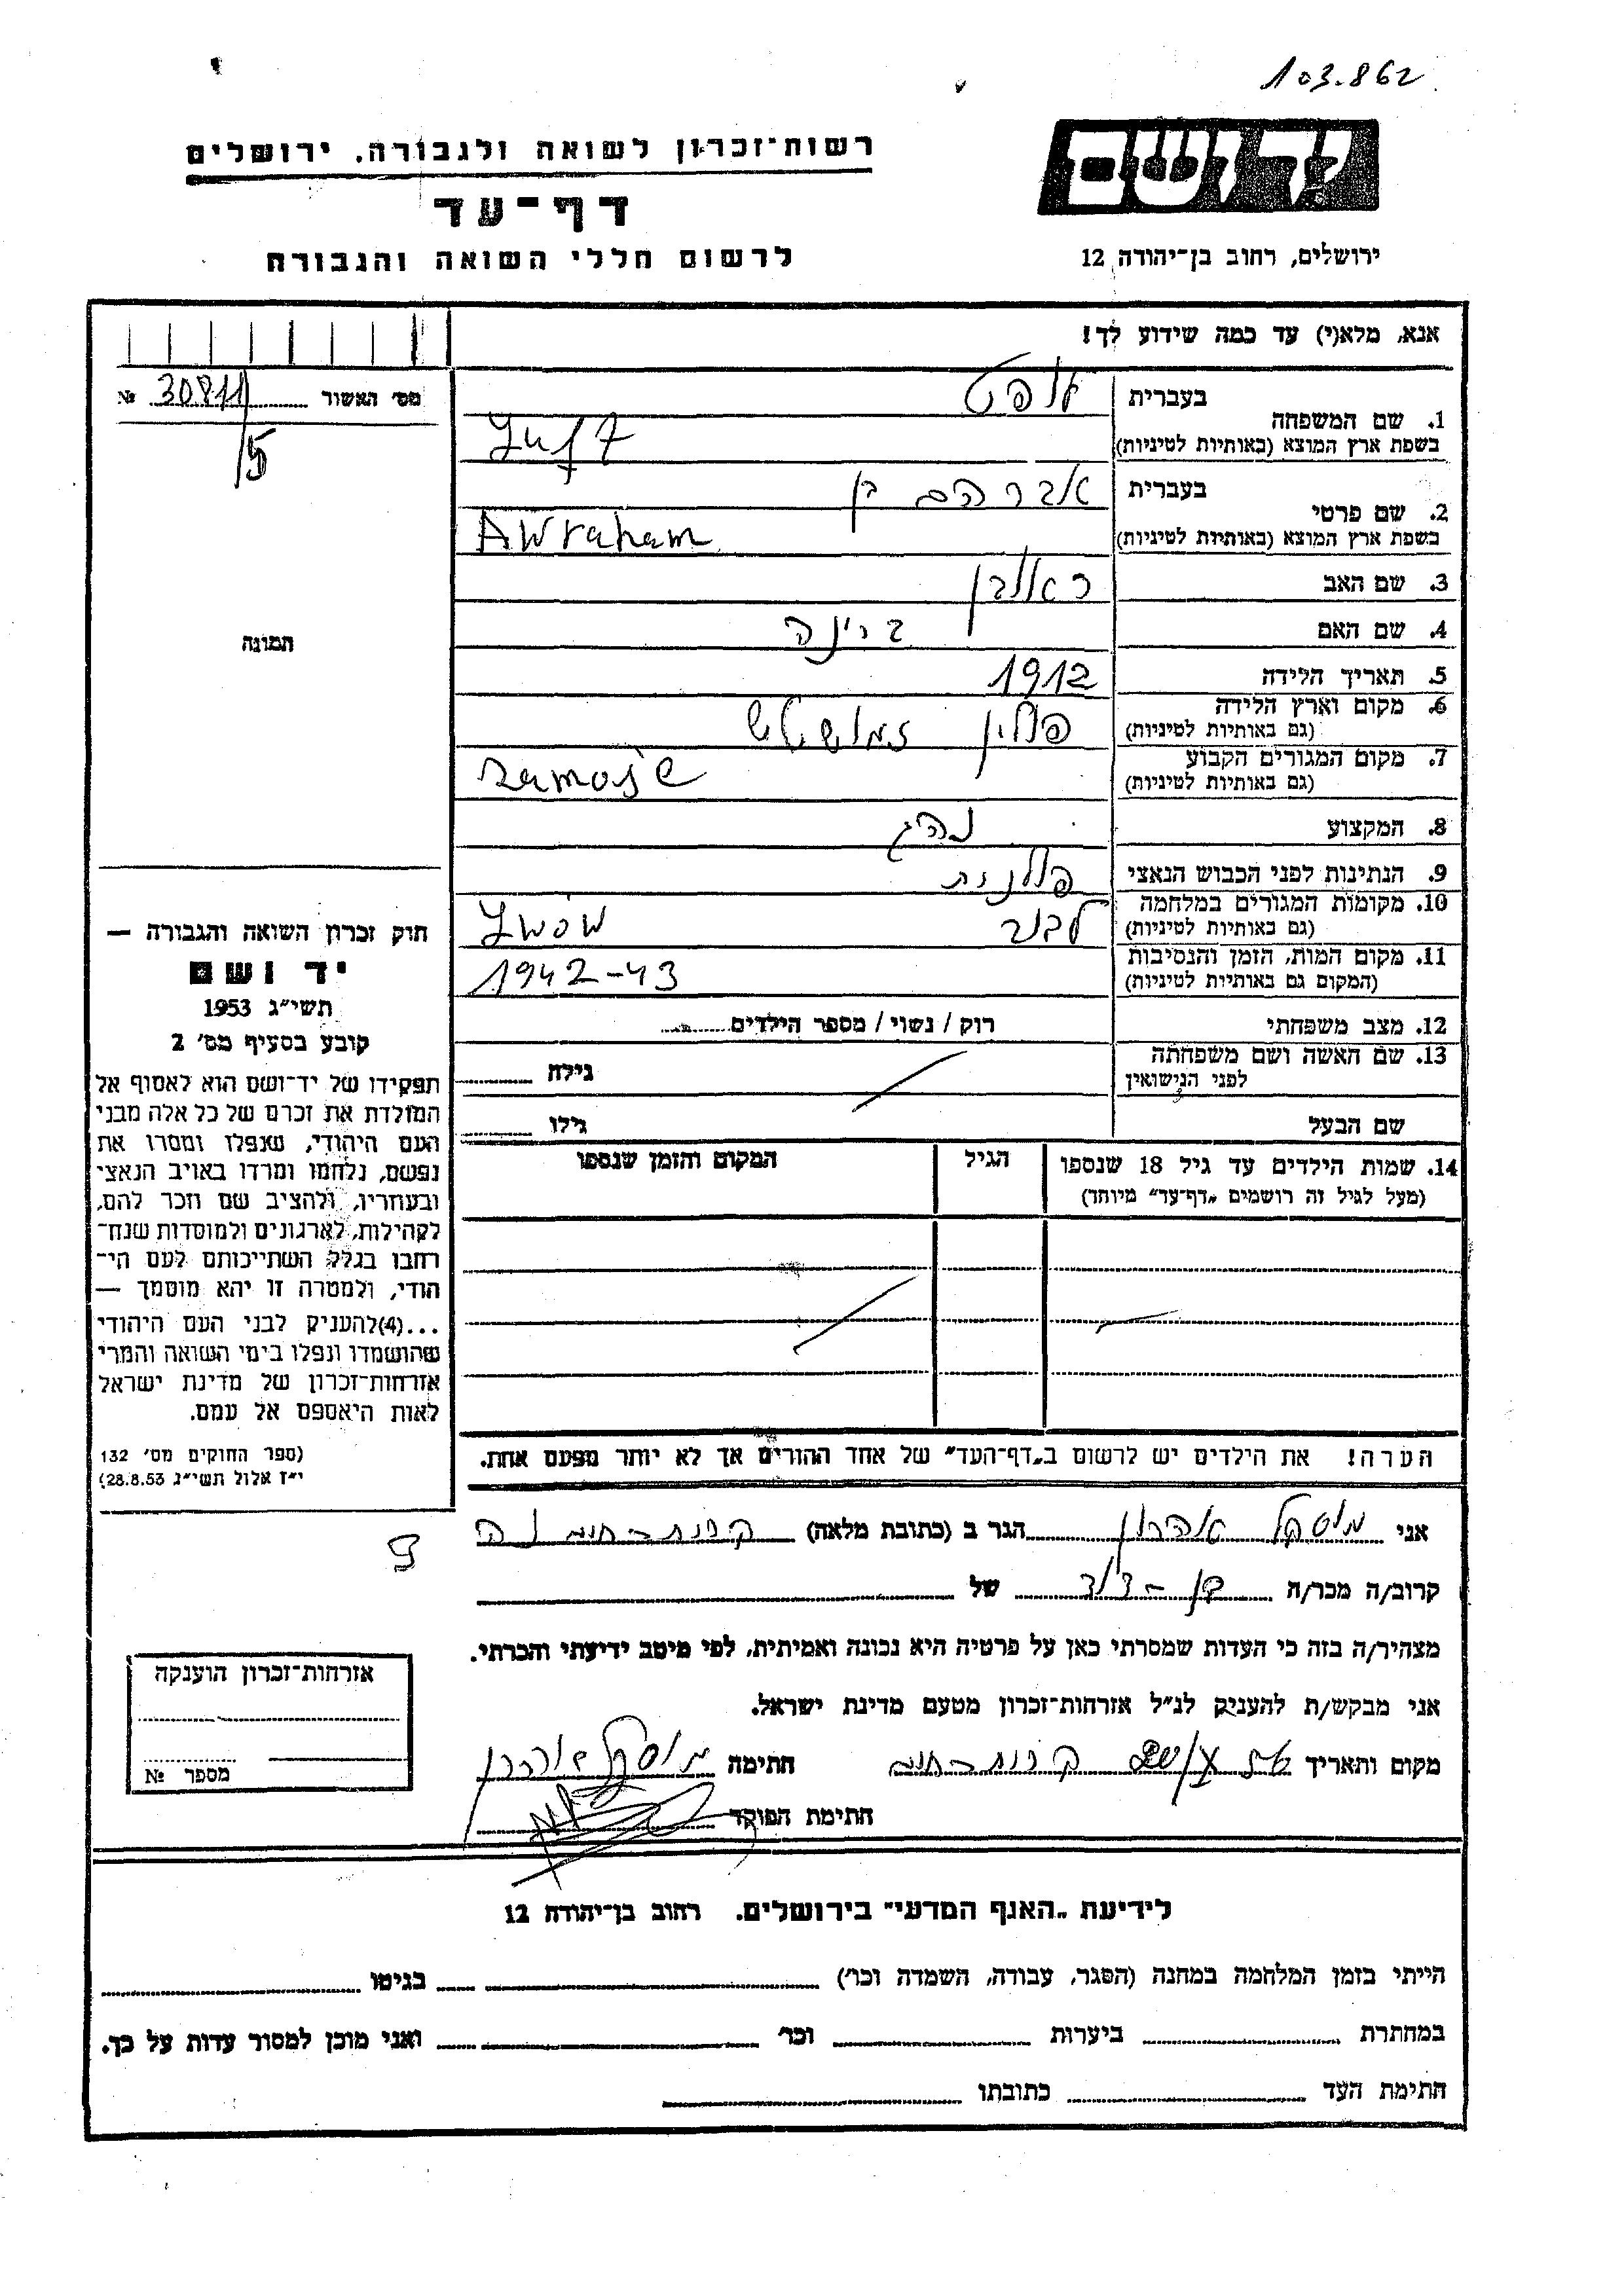 103.862
יד ושם
רשות־זכרון לשואה ולגבורה, ירושלים
דף־עד
לרשום חללי השואה והגבורה
ירושלים, רחוב בן־יהודה 12
אנא, מלא(י) עד כמה שידוע לך!
מס׳ האשור № 30811
15
1. שם המשפחה
בעברית לופט
בשפת ארץ המוצא (באותיות לטיניות) Luft
2. שם פרטי
בעברית אברהם בן
בשפת ארץ המוצא (באותיות לטיניות) Awraham
3. שם האב ראובן
4. שם האם ברינה
5. תאריך הלידה 1912
6. מקום וארץ הלידה פולין
(גם באותיות לטיניות)
7. מקום המגורים הקבוע
(גם באותיות לטיניות)
8. המקצוע נהג
9. הנתינות לפני הכבוש הנאצי פולנית
10. מקומות המגורים במלחמה לבוב Lwów
(גם באותיות לטיניות)
11. מקום המות, הזמן והנסיבות 1942-43
(המקום גם באותיות לטיניות)
12. מצב משפחתי רוק / נשוי / מספר הילדים
13. שם האשה ושם משפחתה גילה
לפני הנישואין
שם הבעל גילו
14. שמות הילדים עד גיל 18 שנספו הגיל המקום והזמן שנספו
(מעל לגיל זה רושמים „דף־עד״ מיוחד)
הערה! את הילדים יש לרשום ב„דף־העד״ של אחד ההורים אך לא יותר מפעם אחת.
תמונה
חוק זכרון השואה והגבורה —
יד ושם
תשי״ג 1953
קובע בסעיף מס׳ 2
תפקידו של יד־ושם הוא לאסוף אל
המולדת את זכרם של כל אלה מבני
העם היהודי, שנפלו ומסרו את
נפשם, נלחמו ומרדו באויב הנאצי
ובעוזריו, ולהציב שם וזכר להם,
לקהילות, לארגונים ולמוסדות שנח־
רחבו בגלל השתייכותם לעם הי־
הודי, ולמטרה זו יהא מוסמך —
...(4)להעניק לבני העם היהודי
שהושמדו ונפלו בימי השואה והמרי
אזרחות־זכרון של מדינת ישראל
לאות היאספם אל עמם.
(ספר החוקים מס׳ 132
י״ז אלול תשי״ג 28.8.53)
אני מוסקל אהרון הגר ב (כתובת מלאה)
קרוב/ה מכר/ה בן-דוד של
מצהיר/ה בזה כי העדות שמסרתי כאן על פרטיה היא נכונה ואמיתית, לפי מיטב ידיעתי והכרתי.
אני מבקש/ת להעניק לנ״ל אזרחות־זכרון מטעם מדינת ישראל.
מקום ותאריך חתימה מוסקל אהרון
חתימת הפוקד
אזרחות־זכרון הוענקה
מספר №
לידיעת „האגף המדעי״ בירושלים. רחוב בן־יהודה 12
הייתי בזמן המלחמה במחנה (הסגר, עבודה, השמדה וכו׳) בגיטו
במחתרת ביערות וכו׳ ואני מוכן למסור עדות על כך.
חתימת העד כתובתו